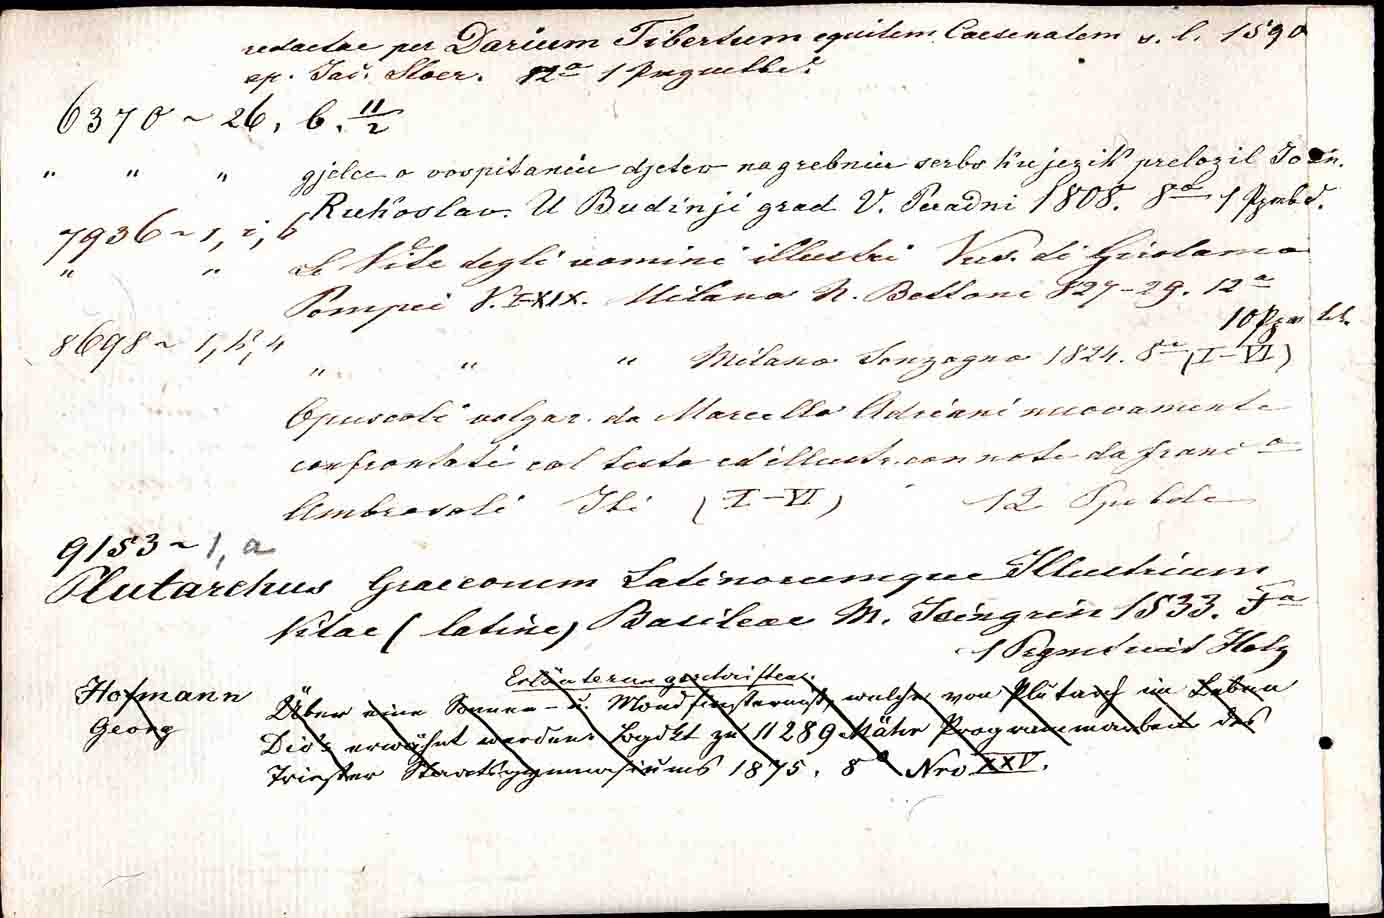 redactae per Darium Tibertum equitem Caesenatem s. l. 1590
ap. Jac. Stoer. 12º 1
6370 ~ 26, b. 11/2
" " " gjelce o vospitaniu djetev na grebniu serbskij jezik prelozil Join.
Rukoslav. U Budinji grad V. 1808. 8º 1
7936 ~ 1, 2, b
" " Le Vite degli uomini illustri Vers. di Girolamo
Pompei V. I-XIX. Milano N. Bettoni 827-29. 12º
10
8698 ~ 1, 2, 4
" " " Milano Sonzogno 1824. 8º (I-VI)
Opuscoli volgar. da Marcello Adriani nuovamente
confrontati col testo ed illustr. con note da Franc.º
Ambrosoli Ibi (I-VI) 12
9153 ~ 1, a
Plutarchus Graecorum Latinorumque Illustrium
Vitae (latine) Basileae M. Isingrin 1533. Fº
1 Pgmt mit Holz
Erläuterungsschriften.
Hofmann Über eine Sonnen- u. Mondfinsterniss, welche von Plutarch im Leben
Georg Dio's erwähnt werden. zu 11289 Mähr Programmarbeit des
Triester Staatsgymnasiums 1875. 8º Nro XXV.